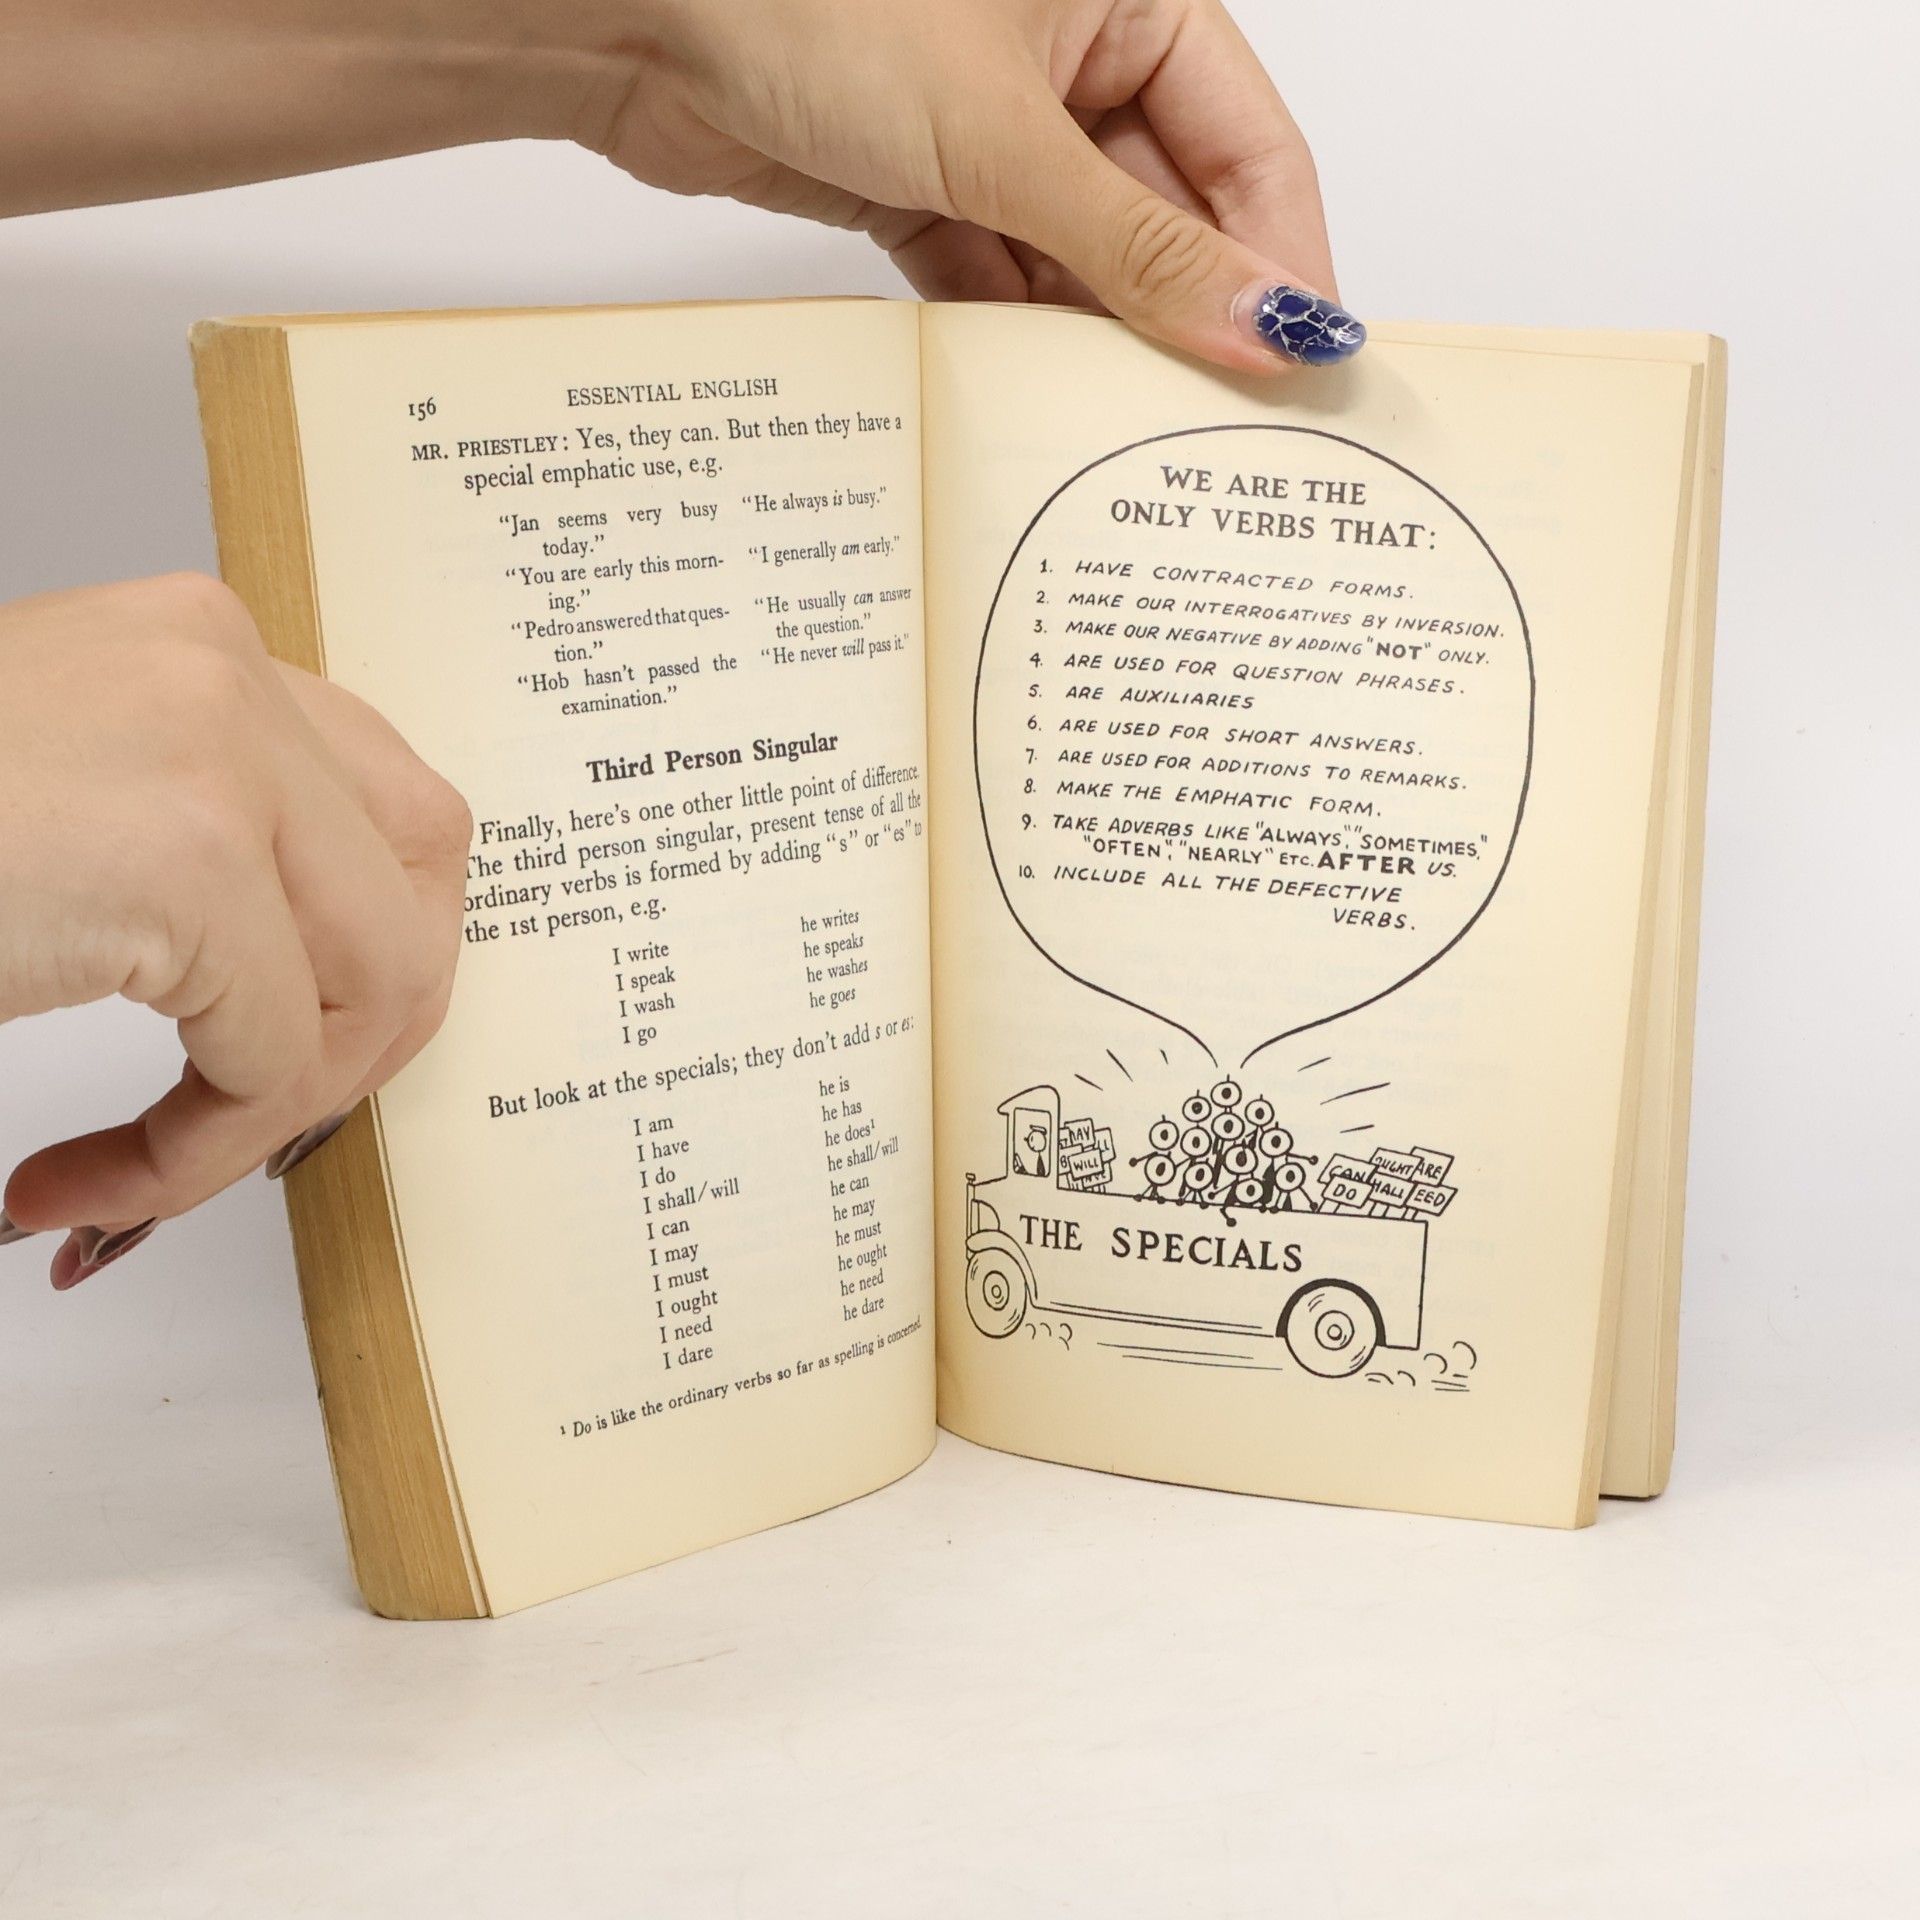 156 ESSENTIAL ENGLISH
MR. PRIESTLEY: Yes, they can. But then they have a
special emphatic use, e.g.
"Jan seems very busy "He always is busy."
today."
"You are early this morn- "I generally am early."
ing."
"Pedro answered that ques- "He usually can answer
tion." the question."
"Hob hasn't passed the "He never will pass it."
examination."
Third Person Singular
Finally, here's one other little point of difference.
The third person singular, present tense of all the
ordinary verbs is formed by adding "s" or "es" to
the 1st person, e.g.
I write he writes
I speak he speaks
I wash he washes
I go he goes
But look at the specials; they don't add s or es:
I am he is
I have he has
I do he does¹
I shall/will he shall/will
I can he can
I may he may
I must he must
I ought he ought
I need he need
I dare he dare
¹ Do is like the ordinary verbs so far as spelling is concerned.
WE ARE THE
ONLY VERBS THAT:
1. HAVE CONTRACTED FORMS.
2. MAKE OUR INTERROGATIVES BY INVERSION.
3. MAKE OUR NEGATIVE BY ADDING "NOT" ONLY.
4. ARE USED FOR QUESTION PHRASES.
5. ARE AUXILIARIES
6. ARE USED FOR SHORT ANSWERS.
7. ARE USED FOR ADDITIONS TO REMARKS.
8. MAKE THE EMPHATIC FORM.
9. TAKE ADVERBS LIKE "ALWAYS," "SOMETIMES,"
"OFTEN", "NEARLY" ETC. AFTER US.
10. INCLUDE ALL THE DEFECTIVE
VERBS.
WILL
OUGHT ARE
CAN
DO HALL EED
THE SPECIALS